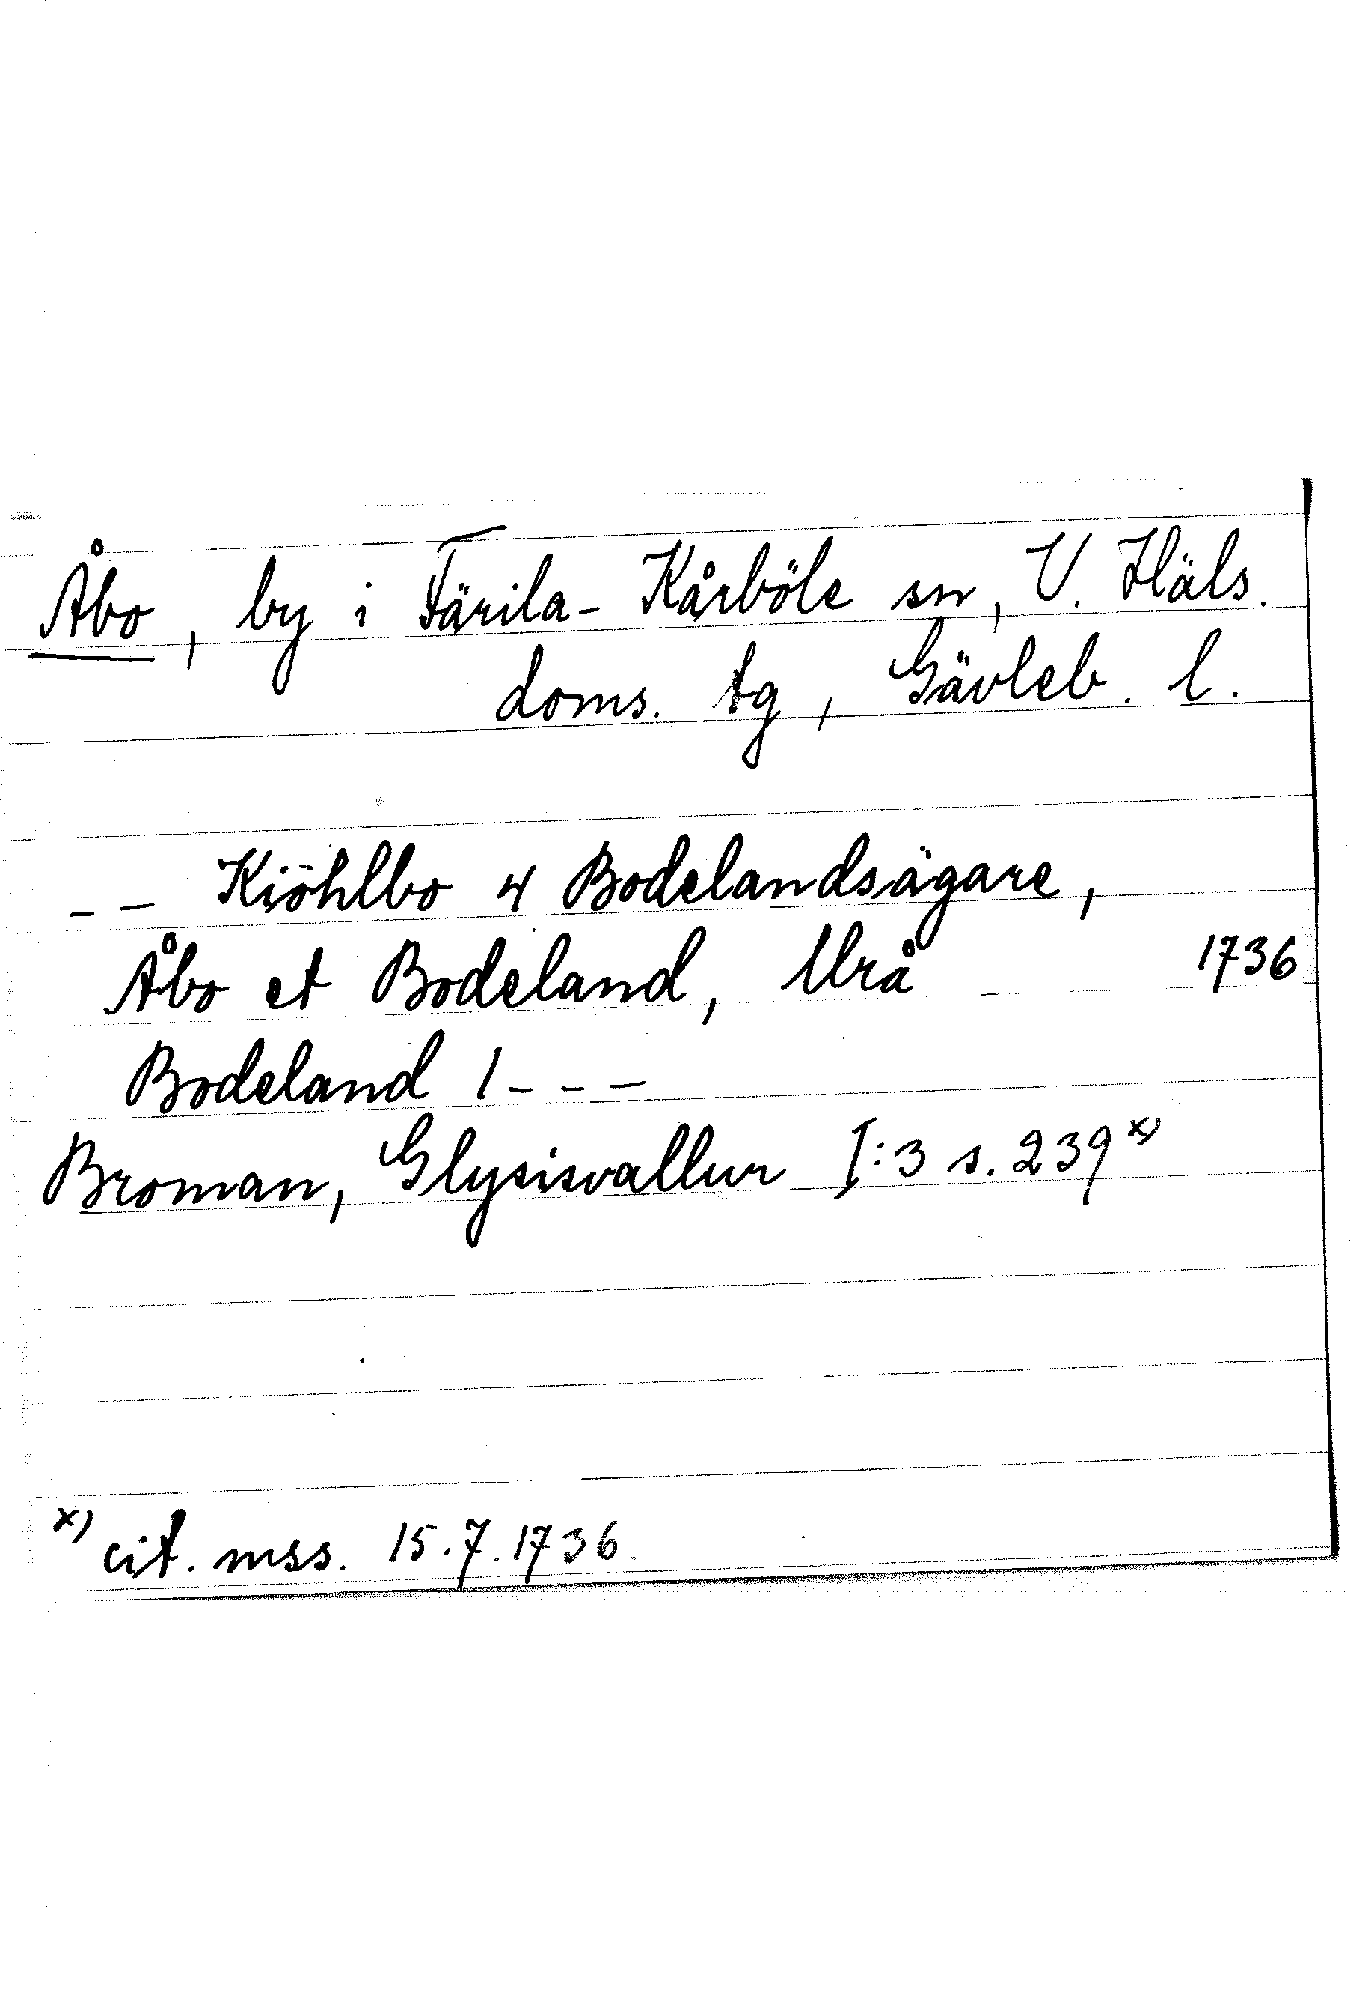 Åbo, by i Färila-Kårböle sn, V. Häls.
doms. tg, Gävleb. l.
-- Kiöhlbo 4 Bodelandsägare,
Åbo et Bodeland, Urå 1736
Bodeland 1---
Broman, Glysisvallur I:3 s. 239 x)
x) cit. mss. 15.7.1736